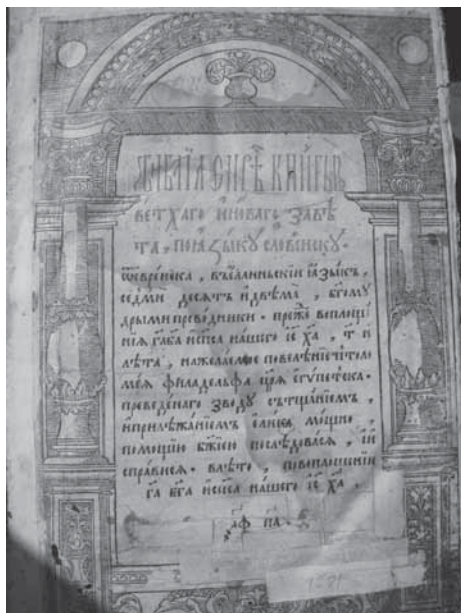 БИБЛІА СИРѢЧЬ КНИГЫ
ВЕТХАГО И НОВАГО ЗАВѢ
ТА, ПО ІАЗЫКУ СЛОВЕНСКУ.
Ѿ еврейска, въ еллиньскїи ıазыкъ,
седмь десѧтъ и двѣма, бгому
дрыми преводники. преже воплоще
нїѧ га бга и спса нашего іс ха, т҃
лѣта, на желаемое повелѣнїе птоло
меѧ филаделфа црѧ египетска.
преведенаго зводу съ тщанїемъ,
и прилѣжанїемъ елико мощно,
помощїю бжїею послѣдовасѧ, и и
справисѧ. в лѣто, по воплощенїи
га бга и спса нашего іс ха,
҂афпа.
1581